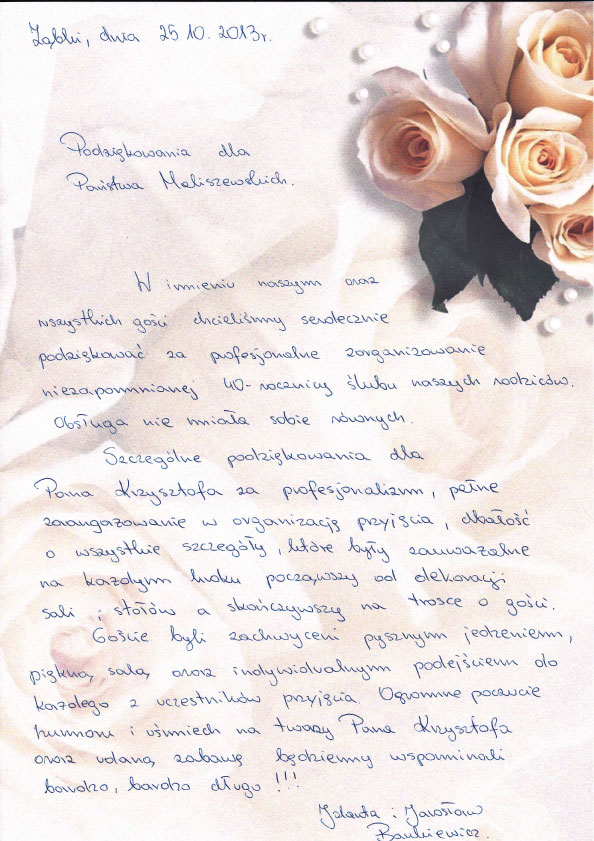 Ząbki, dnia 25.10.2013r.
Podziękowania dla
Państwa Maliszewskich.
W imieniu naszym oraz
wszystkich gości chcieliśmy serdecznie
podziękować za profesjonalne zorganizowanie
niezapomnianej 40-rocznicy ślubu naszych rodziców.
Obsługa nie miała sobie równych.
Szczególne podziękowania dla
Pana Krzysztofa za profesjonalizm, pełne
zaangażowanie w organizację przyjęcia, dbałość
o wszystkie szczegóły, które były zauważalne
na każdym kroku począwszy od dekoracji
sali i stołów a skończywszy na trosce o gości.
Goście byli zachwyceni pysznym jedzeniem,
piękną salą oraz indywidualnym podejściem do
każdego z uczestników przyjęcia. Ogromne poczucie
humoru i uśmiech na twarzy Pana Krzysztofa
oraz udaną zabawę będziemy wspominali
bardzo, bardzo długo !!!
Jolanta i Jarosław
Bankiewicz.